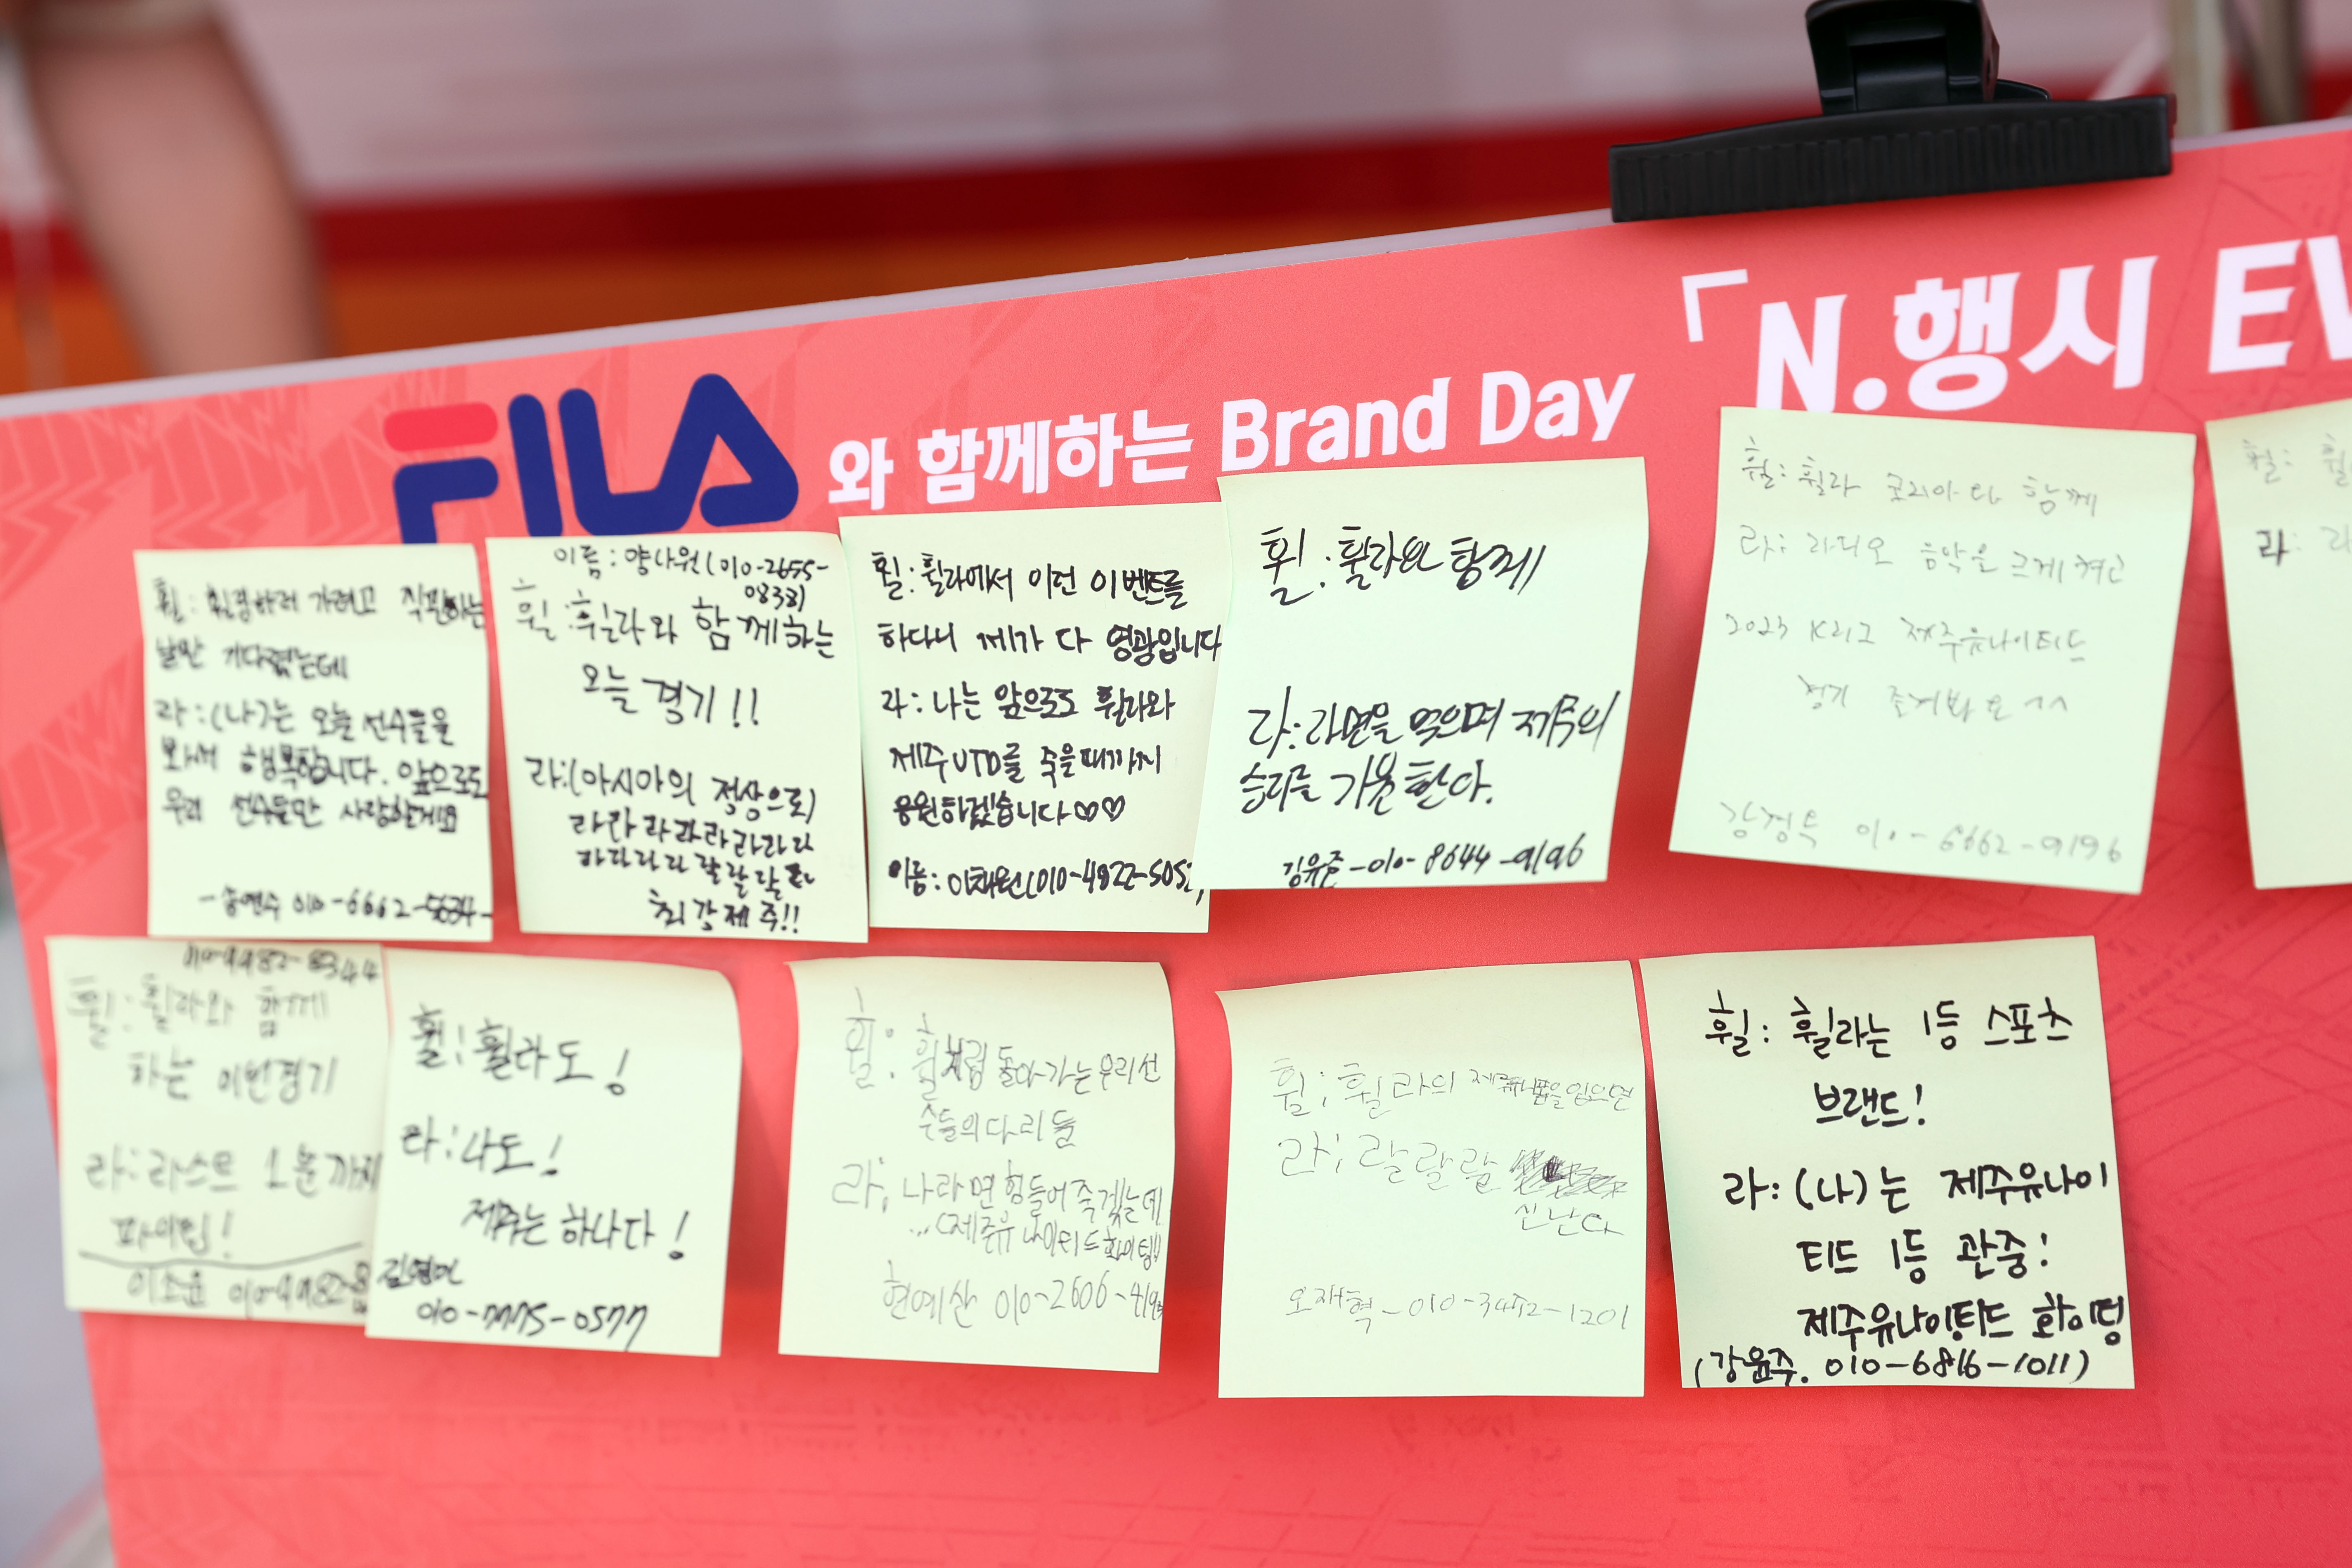 FILA 와 함께하는 Brand Day 「N.행시 EV
휠: 휘경하러 가려고 직관하는
날만 기다렸는데
라: (나)는 오늘 선수들을
봐서 행복합니다. 앞으로도
우리 선수들만 사랑할게요
-송연수 010-6662-5634-
이름: 양나원(010-2655-
0833)
휠: 휠라와 함께하는
오늘 경기!!
라:(아시아의 정상으로)
라라라라라라라라
라라라라랄랄랄라
최강제주!!
휠: 휠라에서 이런 이벤트를
하다니 제가 다 영광입니다
라: 나는 앞으로도 휠라와
제주UTD를 죽을때까지
응원하겠습니다♡♡
이름: 이채원(010-4822-505
휠: 휠라와 함께
라: 라면을 먹으며 제주의
승리를 기원한다.
김유준-010-8644-9196
휠: 휠라 코리아와 함께
라: 라디오 음악을 크게 켜고
2023 K리그 제주유나이티드
경기 즐겨봐요^^
010-6662-9196
휠:
라:
010-9982-8344
휠: 휠라와 함께
하는 이번경기
라: 라스트 1분까지
파이팅!
이소윤 010-9982-8
휠: 휠라도!
라: 나도!
제주는 하나다!
010-7775-0577
휠: 휠처럼 돌아가는우리선
수들의다리들
라: 나라면힘들어죽겠는데
...(제주유나이티드화이팅!!
현예산 010-2606-419
휠: 휠라의 제주유니폼을입으면
라: 랄랄랄
신난다
오재혁-010-3452-1201
휠: 휠라는 1등 스포츠
브랜드!
라: (나)는 제주유나이
티드 1등 관중!
제주유나이티드 화이팅
(강윤주. 010-6816-1011)